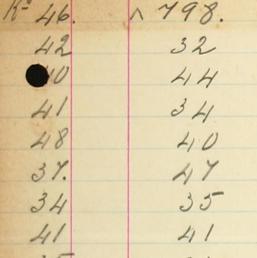 Ro 46. ^ 798.
42 32
40 44
41 34
48 40
37. 47
34 35
41 41